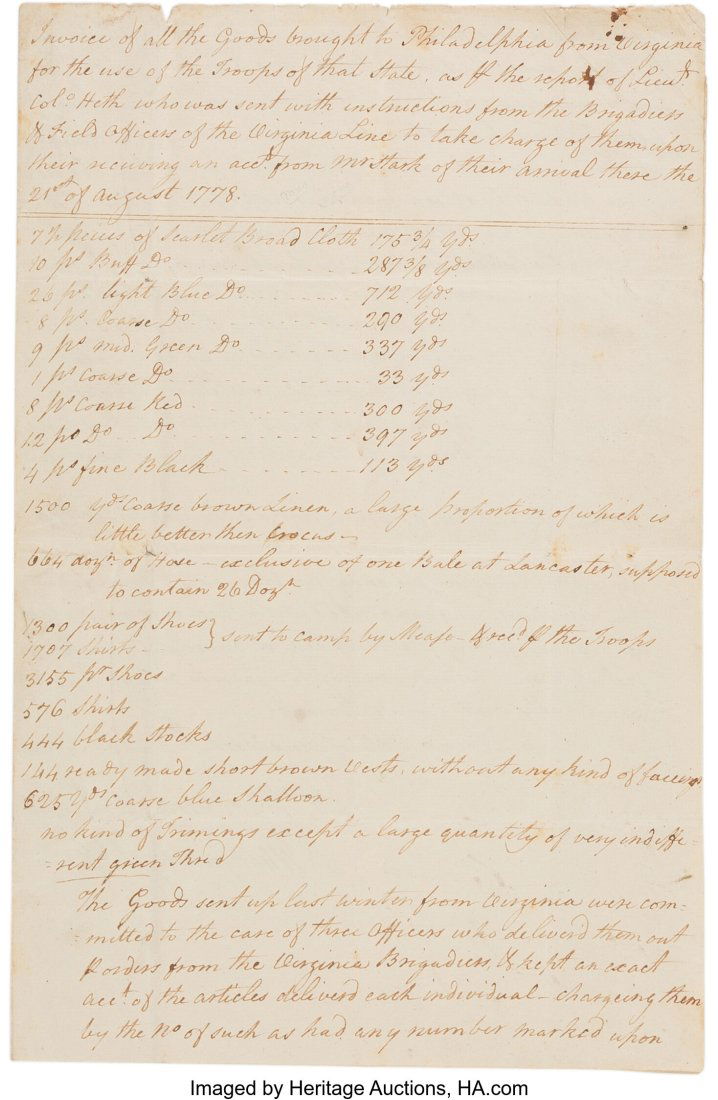 Invoice of all the Goods brought to Philadelphia from Virginia
for the use of the Troops of that State, as ⅌ the report of Lieut.
Colo. Heth who was sent with instructions from the Brigadiers
& Field Officers of the Virginia Line to take charge of them upon
their reciving an acct. from Mr Stark of their arrival there the
21st of August 1778.
7½ peices of Scarlet Broad Cloth 175 3/4 Yds
10 ps. Buff Do 287 3/8 Yds
26 ps. light Blue Do 712 Yds
8 ps. Coarse Do 290 Yds
9 ps mid. Green Do 337 yds
1 ps Coarse Do 33 yds
8 ps Coarse Red 300 yds
12 ps Do Do 397 yds
4 ps fine Black 113 yds
1500 yds Coarse brown Linen, a large proportion of which is
little better then Crocus —
664 dozn. of Hose — exclusive of one Bale at Lancaster, supposed
to contain 26 Dozn.
1300 pair of Shoes } sent to camp by Mease — & recd. ⅌ the Troops
1707 Shirts —
3155 pr Shoes
576 Shirts
444 black Stocks
144 ready made short brown Vests, without any kind of facings
625 Yds Coarse blue Shalloon.
no kind of Trimings except a large quantity of very indiffe-
-rent green Thre'd
The Goods sent up last winter from Virginia were com-
-mitted to the care of three Officers who deliverd them out
⅌ orders from the Virginia Brigadiers, & kept an exact
acct. of the articles deliverd each individual — chargeing them
by the No of such as had any number marked upon
Imaged by Heritage Auctions, HA.com